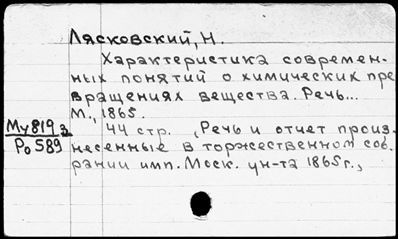 Лясковский, Н.
Характеристика современ-
ных понятий о химических пре
вращениях вещества. Речь...
М., 1865.
Му 819 з
Ро 589
44 стр. (Речь и отчет произ-
несенные в торжественном соб-
рании имп. Моск. ун-та 1865 г.,